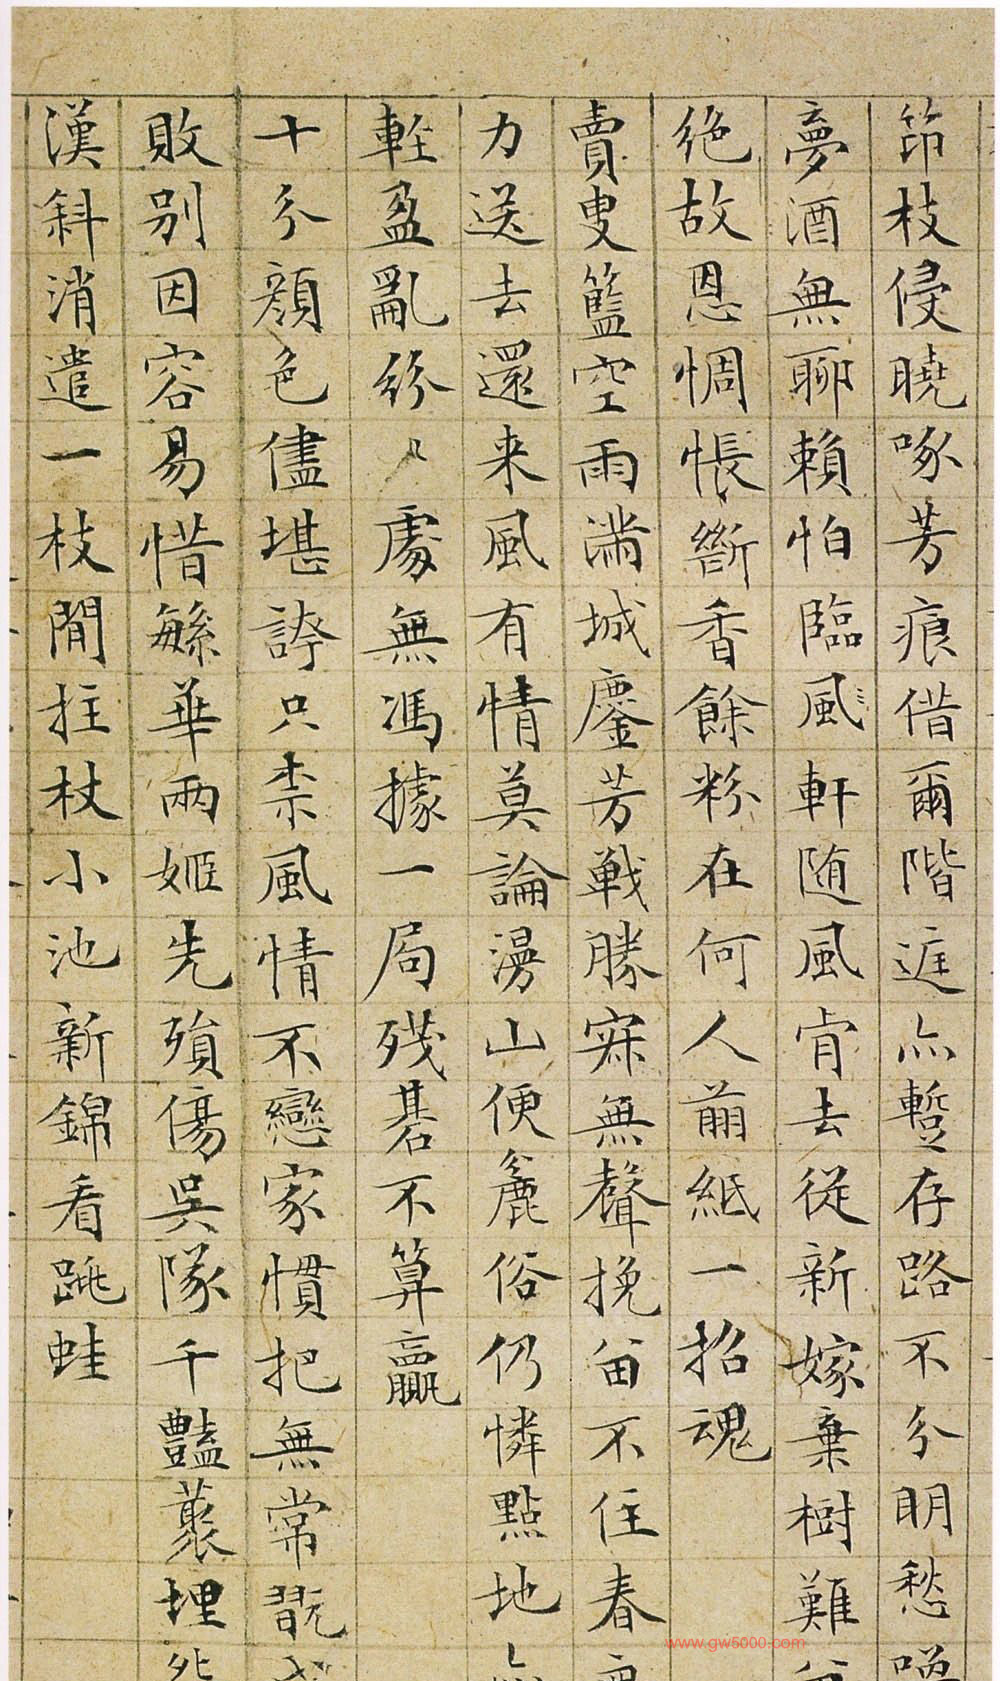 笻枝侵曉啄芳痕借爾階庭亦暫存路不分明愁喚
夢酒無聊賴怕臨風軒随風肯去從新嫁棄樹難
絶故恩惆悵斷香餘粉在何人萠紙一招魂
賣叟籃空雨滿城鏖芳戰勝寂無聲挽留不住春
力送去還来風有情莫論漫山便麄俗仍憐點地
軽盈亂紛〻處無馮據一局残碁不算贏
十分顔色儘堪誇只柰風情不戀家慣把無常翫
敗别因容易惜繁華兩姬先殞傷吳隊千豔叢埋
漢斜消遣一枝閒拄杖小池新錦看跳蛙
www.gw5000.com